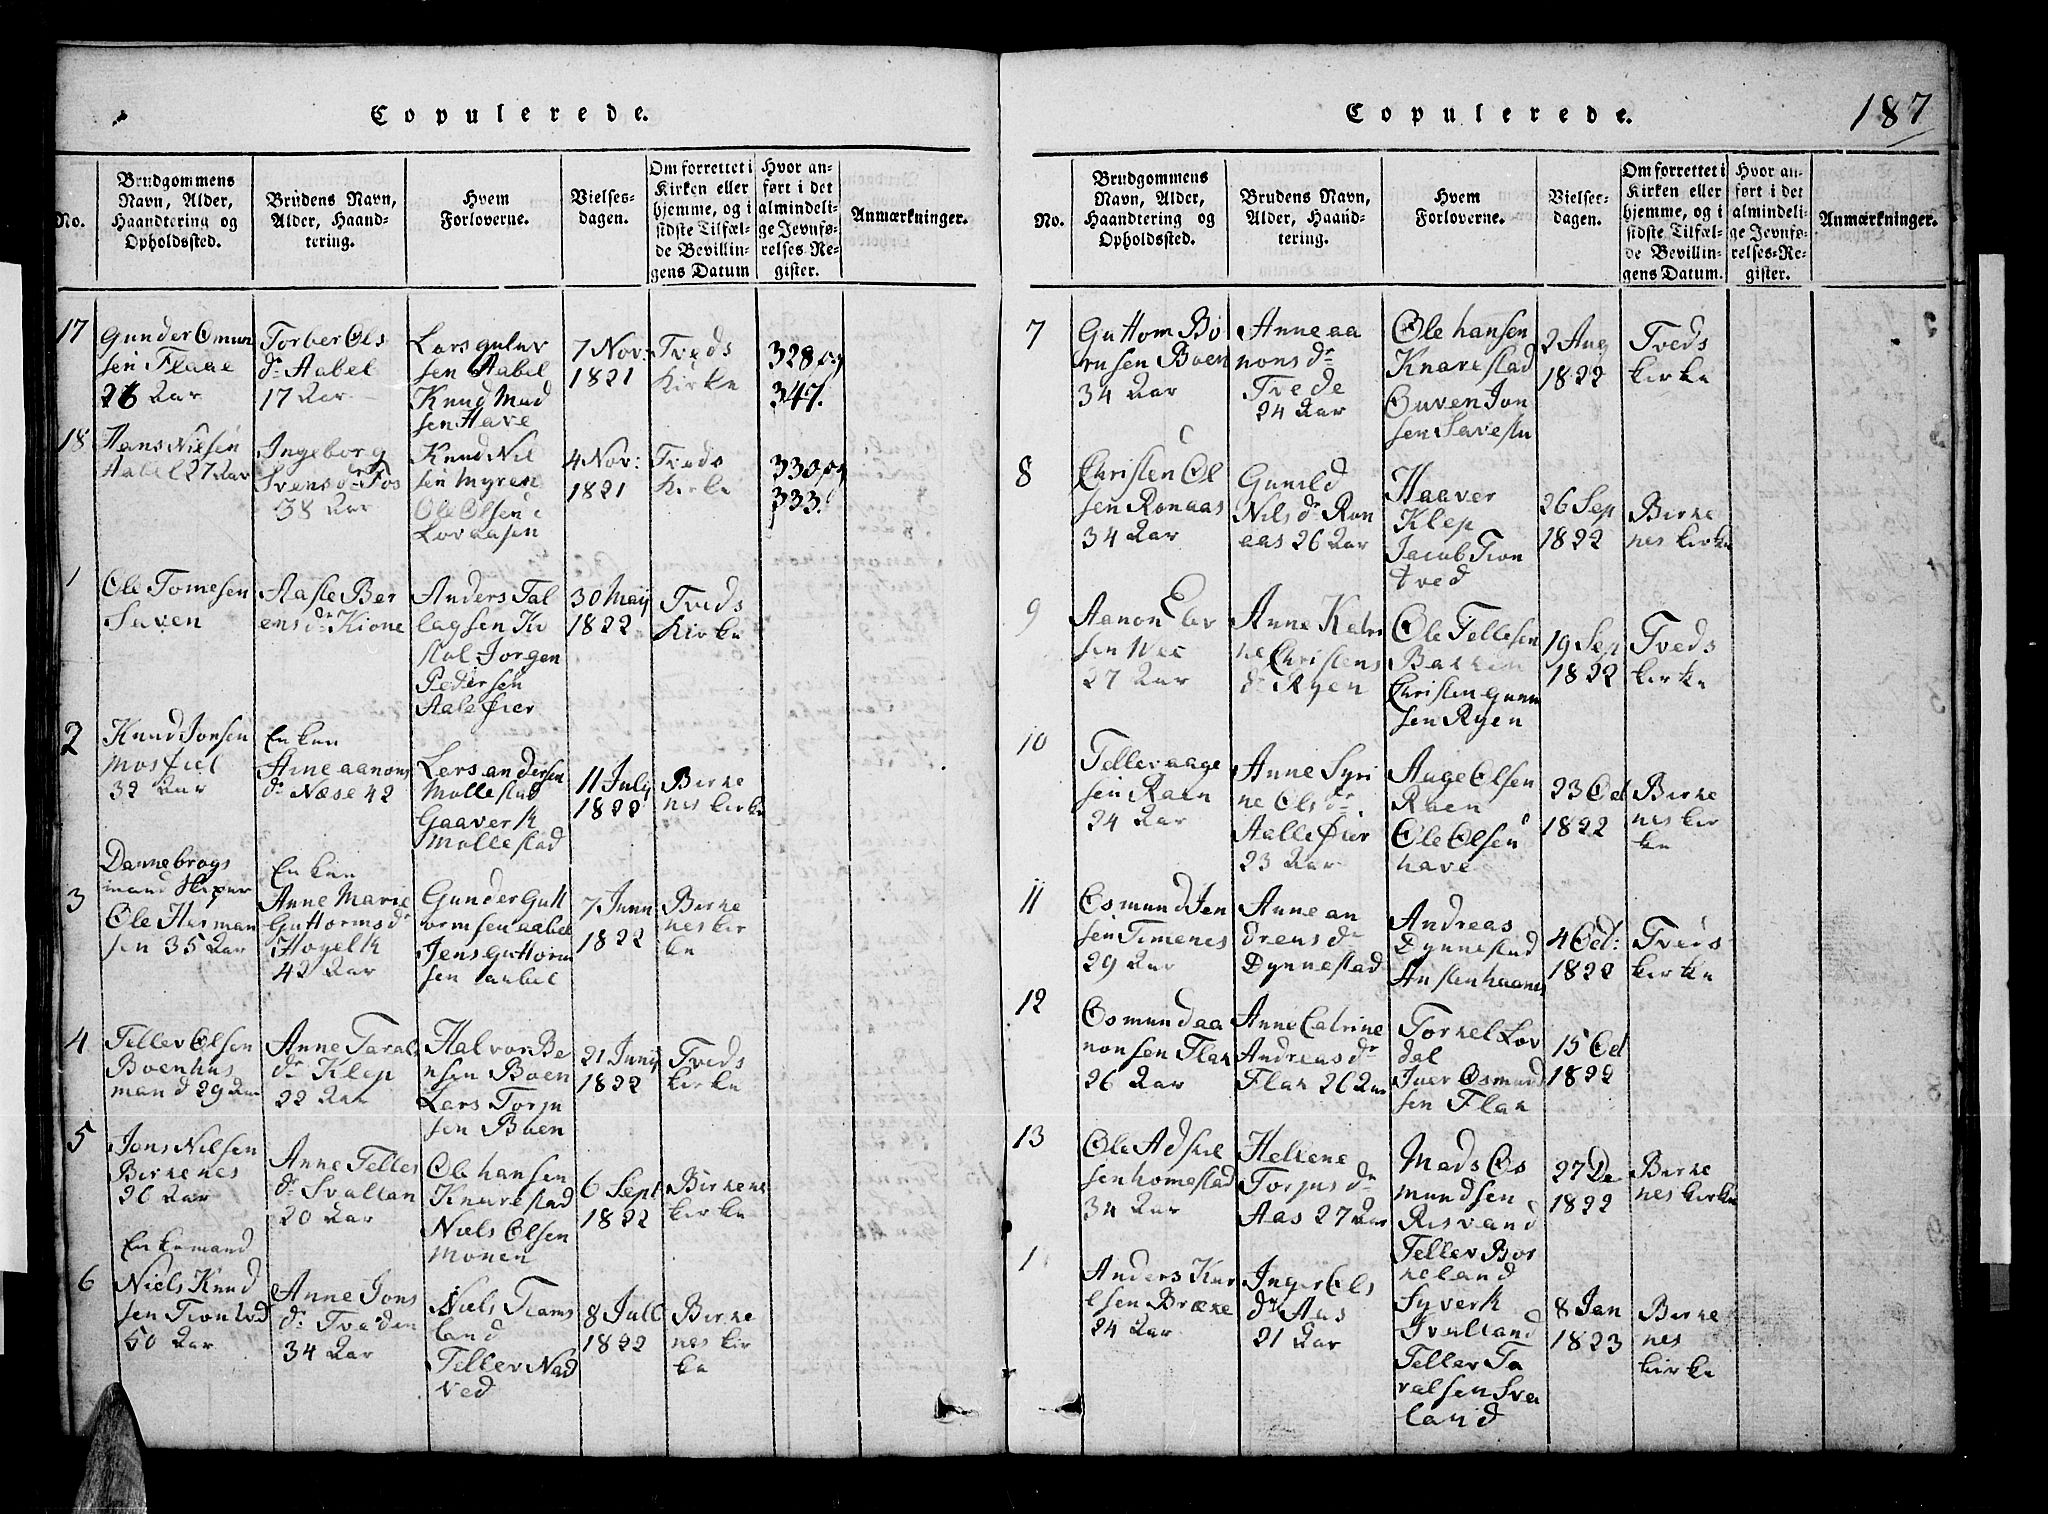 Copulerede.
No.
Brudgommens
Navn, Alder,
Haandtering og
Opholdssted.
Brudens Navn,
Alder, Haand-
tering.
Hvem
Forloverne.
Vielses-
dagen.
Om forrettet i
Kirken eller
hjemme, og i
sidste Tilfæl-
de Bevillin-
gens Datum
Hvor an-
ført i det
almindeli-
ge Jevnfø-
relses-Re-
gister.
Anmærkninger.
17
Gunder Omun
sen Flaae
26 Aar
Torber Ols
dr Aabel
17 Aar
Lars
sen Aabel
Knud Mad
sen Have
7 Nov:
1821
Tveds
Kirke
328 og
347.
18
Hans Nielsen
Aabel 27 Aar
Ingeborg
Svens dr Fos
38 Aar
Knud Nil
sen Myren
Ole Olsen i
Lovaasen
4 Nov:
1821
Tveds
Kirke
330 og
333.
1
Ole Tomesen
Saven
Aasle Ber
ens dr Kione
Anders Tal
lagsen Kv
stol Jorgen
Pedersen
Aaleøier
30 Maij
1822
Tveds
Kirke
2
Knud Jonsen
Mosfiel
32 Aar
Enken
Ane aanons
dr Næse 42
Lars andersen
Mollestad
Gaaver k
Mollestad
11 July
1822
Birke
nes kirke
3
Dannebrogs
mand skiper
Ole Herman
sen 35 Aar
Enken
Anne Marie
Guttorms dr
Hogelk
42 Aar
Gunder Gutt
ormsen aabel
Jens Guttorm
sen aabel
7 Juni
1822
Birke
nes kir
ke
4
Teller Olsen
Boen hus
mand 29 Aar
Anne Taral
dr Klep
22 Aar
Halvor Be
nsen Boen
Lars Torju
sen Boen
21 Junij
1822
Tveds
kirke
5
Jons Nilsen
Birkenes
26 Aar
Anne Telles
dr Svaltan
20 Aar
Ole hansen
Knarestad
Niels Olsen
Monen
6 Sept
1822
Birkene
kirke
6
Enkemand
Niels Knud
sen Tiontvd
50 Aar
Anne Jons
dr Tveden
34 Aar
Niels Tiams
land
Teller Nad
ved
8 Jull
1822
Birke
nes kir
ke
Copulerede.
187
No.
Brudgommens
Navn, Alder,
Haandtering og
Opholdssted.
Brudens Navn,
Alder, Haand-
tering.
Hvem
Forloverne.
Vielses-
dagen.
Om forrettet i
Kirken eller
hjemme, og i
sidste Tilfæl-
de Bevillin-
gens Datum.
Hvor an-
ført i det
almindeli-
ge Jevnfø-
relses-Re-
gister.
Anmærkninger.
7
Guttom Bo
rusen Boen
34 Aar
Anne aa
nons dr
Tvede
24 Aar
Ole hansen
Knarestad
Ouven Jon
sen
2 Aug
1822
Tveds
kirke
8
Christen Ol
sen Ronaas
34 Aar
Gunild
Nils dr Ron
aas 26 Aar
Haaver
Klep
Jacob Tion
tved
26 Sep
1822
Birke
nes kirke
9
Aanon Elev
sen Wee
27 Aar
Anne Katri
ne Christens
dr Ryen
Ole Tellesen
Bakken
Christen Gunn
sen Ryen
19 Sep
1822
Tveds
kirke
10
Teller aage
sen Raen
24 Aar
Anne Syri
ne Ols dr
Aalleøier
23 Aar
Auge Olsen
Raen
Ole Olsen
have
23 Oct
1822
Birke
nes kir
ke
11
Osmund Jen
sen Timenes
29 Aar
Anne an
drens dr
Dynnestad
Andreas
Dynnestad
Austen haanes
4 Oct:
1822
Tveds
kirke
12
Osmund aa
nonsen Flak
26 Aar
Anne Catrine
Andreas dr
Flak 26 Aar
Torkel Lov
dal
Iver Osmund
sen Flak
15 Oct
1822
13
Ole Adskil
sen homestad
34 Aar
Hellene
Torjus dr
Aas 27 Aar
Mads Os
mundsen
Risvand
Teller Bor
keland
27 De
1822
Birke
nes kirke
1
Anders Knu
tsen Bræke
24 Aar
Inger Ols
dr Aas
21 Aar
Syverk
Svaltand
Teller Ta
ralsen Sva
land
8 Jan
1823
Birke
nes
kirke